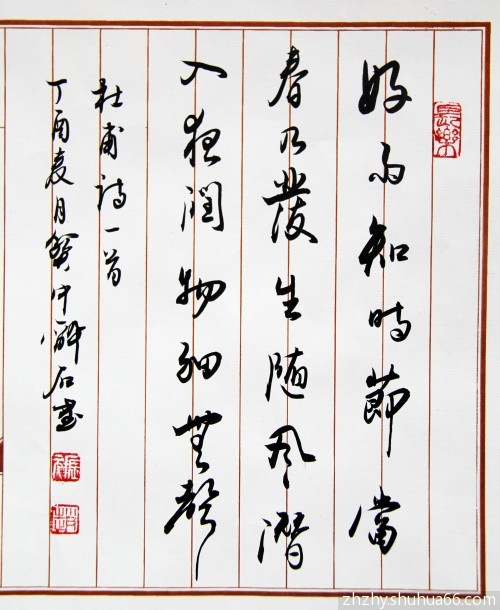 長樂
好雨知時節當
春乃發生随风潛
入夜潤物細無聲
杜甫詩一首
丁酉夏月
zhzhy.shuhua66.com